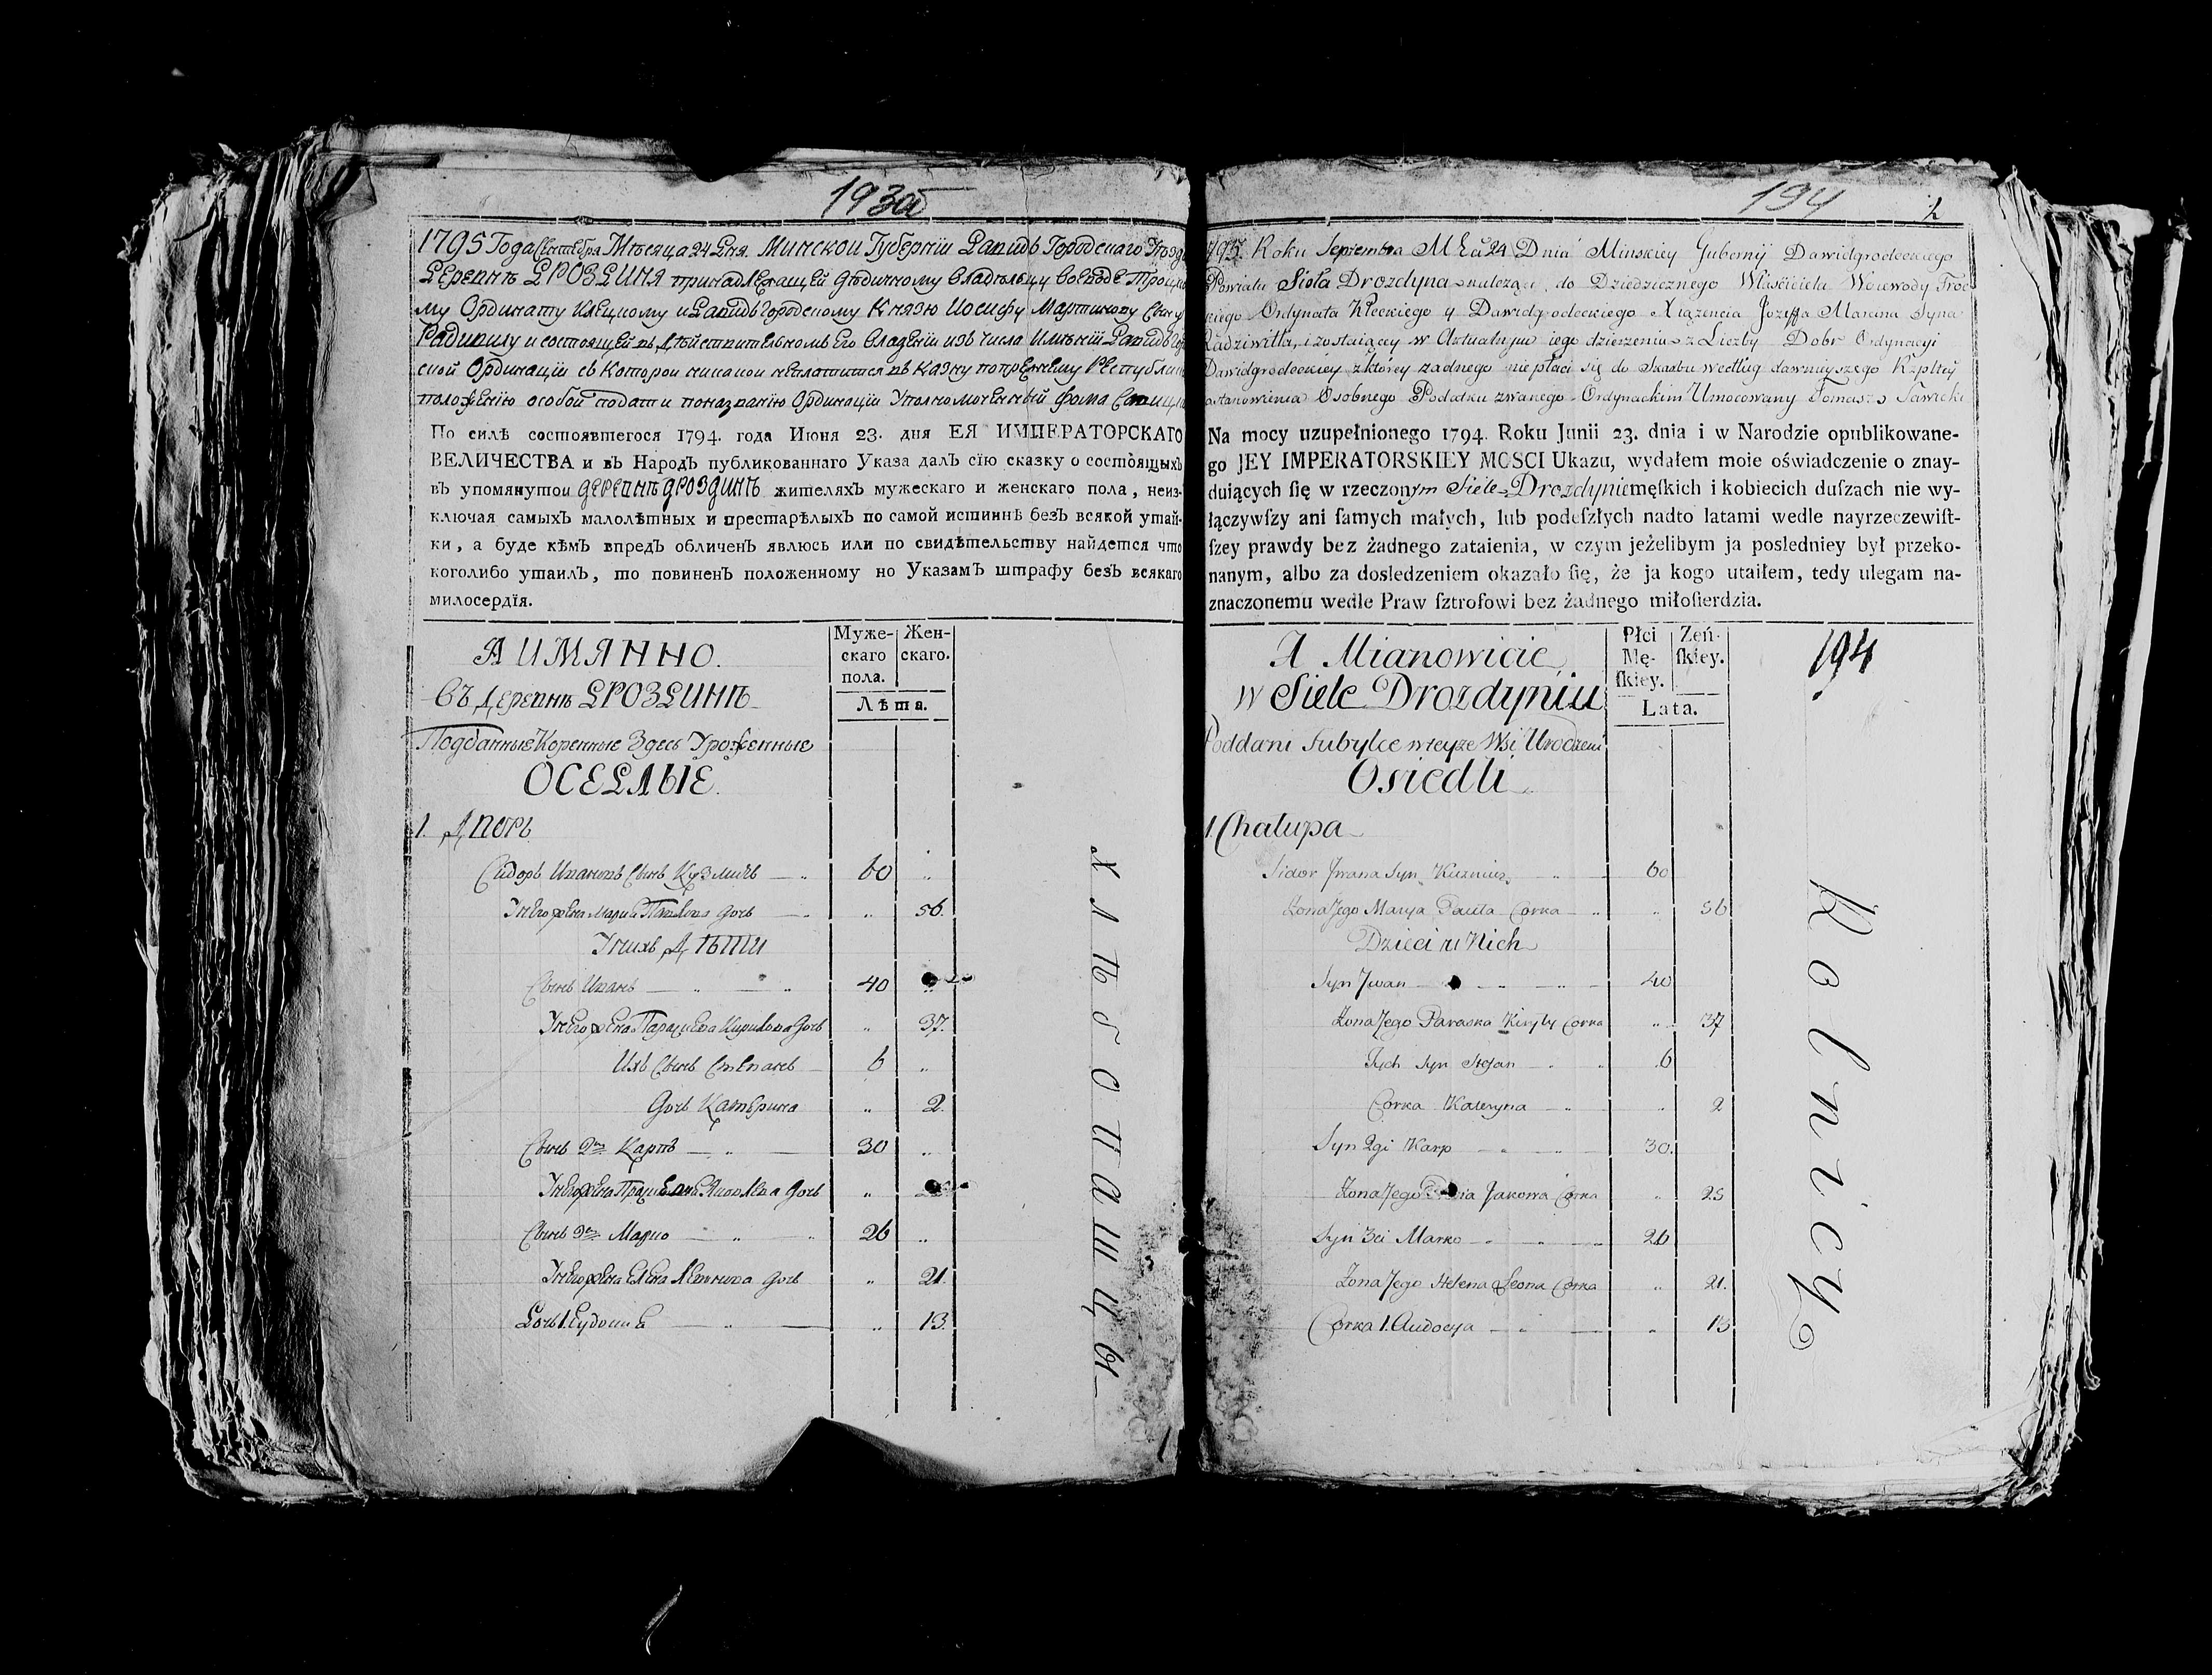 193об
1795 Года Сентебря Мѣсяца 24 Дня. Минской Губерніи Давидъ Городскаго
Деревнѣ ДРОЗДИНЯ принадлежащей дѣдичному владѣльцу воеводѣ Троцко
му Ординату Клецкому и Давидъгородскому Князю Иосифу Мартинову Сыну
Радивилу и состоящей въ дѣйствительномъ его владеніи изъ числа имѣній Давидъ
ской Ординаціи съ которой никакой неплотится въ казну попрежнему Републик
положенію особой подати поназванію Ординаціи Уполномоченный Фома
По силѣ состоявшегося 1794. года Июня 23. дня ЕЯ ИМПЕРАТОРСКАГО
ВЕЛИЧЕСТВА и въ Народъ публикованнаго Указа далъ сїю сказку о состоящыхъ
въ упомянутой ДЕРЕВНѢ ДРОЗДИНѢ жителяхъ мужескаго и женскаго пола, неиз-
ключая самыхъ малолѣтныхъ и престарѣлыхъ по самой истиннѣ безъ всякой утай-
ки, а буде кѣмъ впредъ обличенъ явлюсь или по свидѣтельству найдется что
коголибо утаилъ, то повиненъ положенному по Указамъ штрафу безъ всякаго
милосердїя.
А ИМЯННО.
Муже-
скаго
пола.
Жен-
скаго.
Лѣта.
Въ Деревнѣ ДРОЗДИНѢ
Подданные Коренные Здесь Урожденные
ОСЕДЛЫЕ.
1. Дворъ
Сидоръ Ивановъ Сынъ Кузмичъ 60
У него жена Марья Павлова дочь 56.
У нихъ Дѣти
Сынъ Иванъ 40
У него жена Парасцева Кирилова дочь 37.
Ихъ Сынъ Степанъ 6
Дочь Катерина 2.
Сынъ 2й Карпъ 30
У него жена Яковлева дочь
Сынъ 3й Марко 26
У него жена Елена Леонова дочь 21.
Дочь 1. Еудокия 13.
Хлѣбопашцы
194
2
1795. Roku Septembra M Ca 24 Dnia Minskiey Gubernij Dawidgrodeckiego
Powiatu Sioła Drozdyna należące, do Dziedzicznego Właściciela Woiewody Troc
kiego Ordynata Kleckiego y Dawidgrodeckiego Xiązencia Jozeffa Marcina Syna
Radziwiłła, i zostaiącey w Aktualnym iego dzierzeniu z Liczby Dobr Ordynacyi
Dawidgrodeckiey z ktorey zadnego nie płaci się do Skarbu według dawnieyszego Rzpltey
ustanowienia Osobnego Podatku zwanego Ordynackim Umocowany Tomasz Sawicki
Na mocy uzupełnionego 1794. Roku Junii 23. dnia i w Narodzie opublikowane-
go JEY IMPERATORSKIEY MOSCI Ukazu, wydałem moie oświadczenie o znay-
duiących ſię w rzeczonym Siele Drozdynie męſkich i kobiecich duſzach nie wy-
łączywſzy ani ſamych małych, lub podeſzłych nadto latami wedle nayrzeczewiſt-
ſzey prawdy bez żadnego zataienia, w czym jeżelibym ja posledniey był przeko-
nanym, albo za dosledzeniem okazało ſię, że ja kogo utaiłem, tedy ulegam na-
znaczonemu wedle Praw ſztrofowi bez żadnego miłoſierdzia.
A Mianowicie
Płci
Mę-
ſkiey.
Zeń-
ſkiey.
194
w Siele Drozdyniu
Lata.
Poddani Tubylce w teyze Wsi Urodzeni
Osiedli
1. Chałupa
Sidor Jwana Syn Kuzmicz 60
Zona Jego Marya Pawła Corka 56
Dzieci u Nich
Syn Jwan 40
Zona Jego Paraska Kiryły Corka 37
Jych Syn Stefan 6
Corka Kateryna 2
Syn 2gi Karp 30.
Zona Jego Jakowa Corka 25
Syn 3ci Marko 26
Zona Jego Helena Leona Corka 21.
Corka 1. Audocya 13
Rolnicy